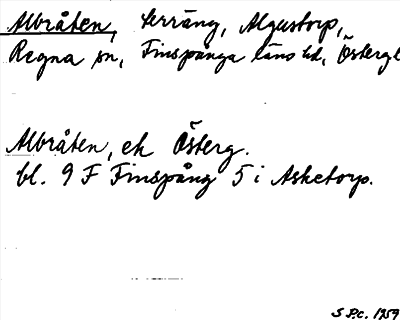 Albråten, terräng, Algustorp,
Regna sn, Finspånga läns hd, Östergl
Albråten, ek Österg.
bl. 9 F Finspång 5 i Asketorp.
S P.c. 1959